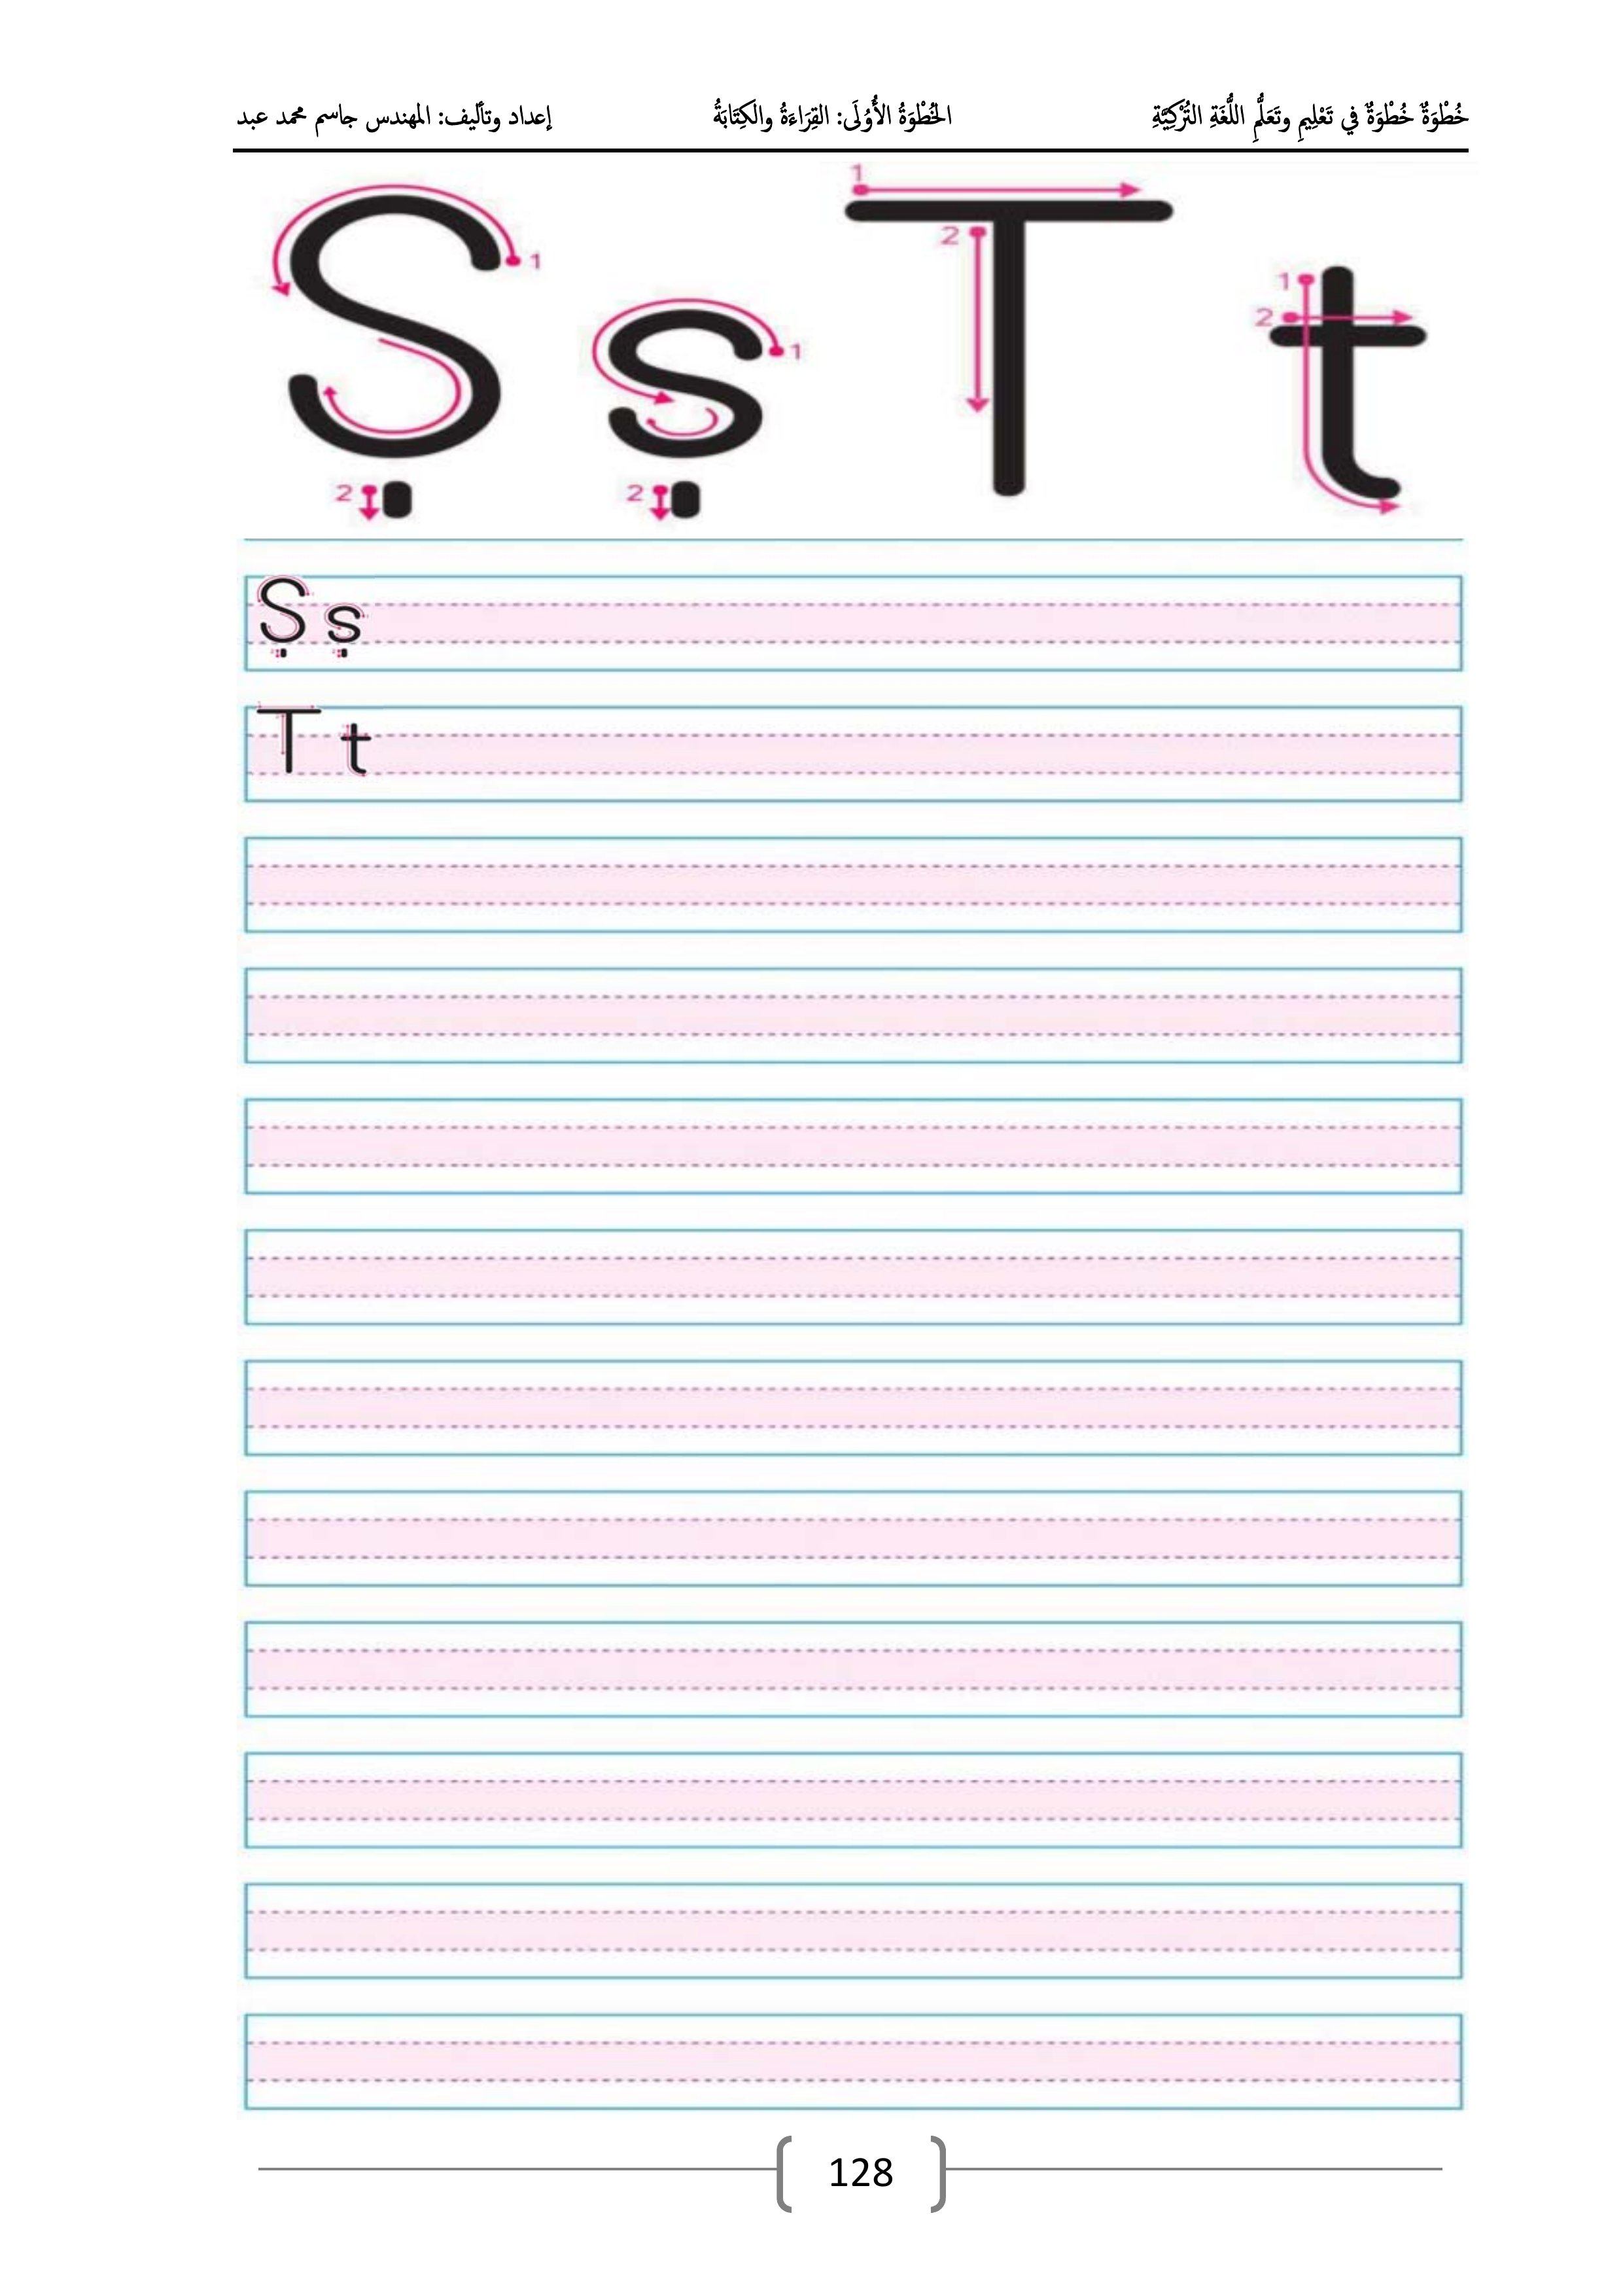 خُطْوَةٌ خُطْوَةٌ في تَعْلِيمِ وتَعَلُّمِ اللُّغَةِ التُّرْكِيَّةِ الخُطْوَةُ الأُوْلَى: القِرَاءَةُ والكِتَابَةُ إعداد وتأليف: المهندس جاسم محمد عبد
Ṣ 1 2 ṣ 1 2 T 1 2 t 1 2
Ṣ ṣ
T t
128